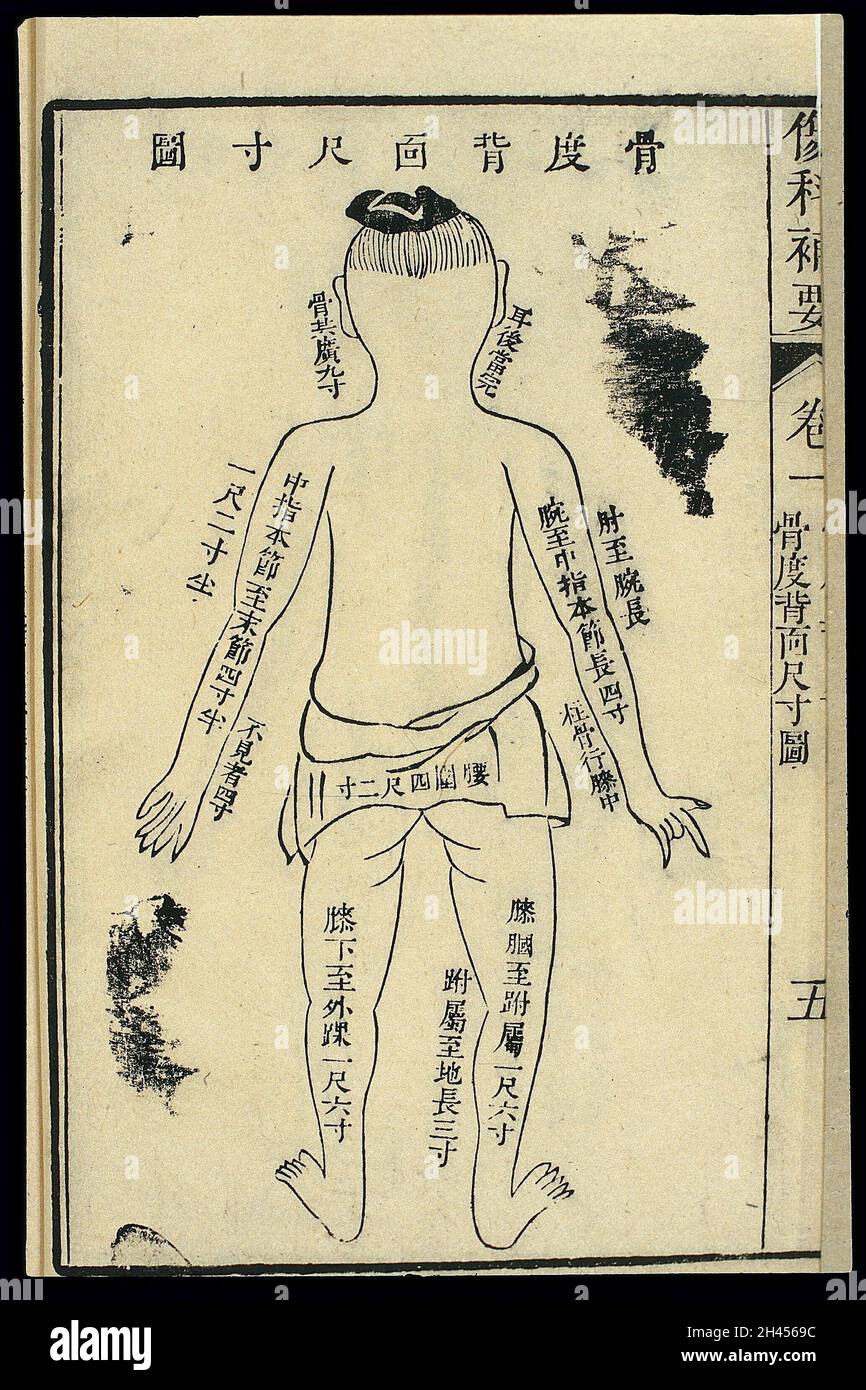 骨度背面尺寸圖
傷科補要
卷一
骨度背面尺寸圖
五
耳後當完
骨共廣九寸
肘至腕長
一尺二寸半
腕至中指本節長四寸
中指本節至末節四寸半
柱骨行膝中
不見者四寸
腰圍四尺二寸
膝膕至跗屬一尺六寸
跗屬至地長三寸
膝下至外踝一尺六寸
alamy
alamy
Image ID: 2H4569C
www.alamy.com